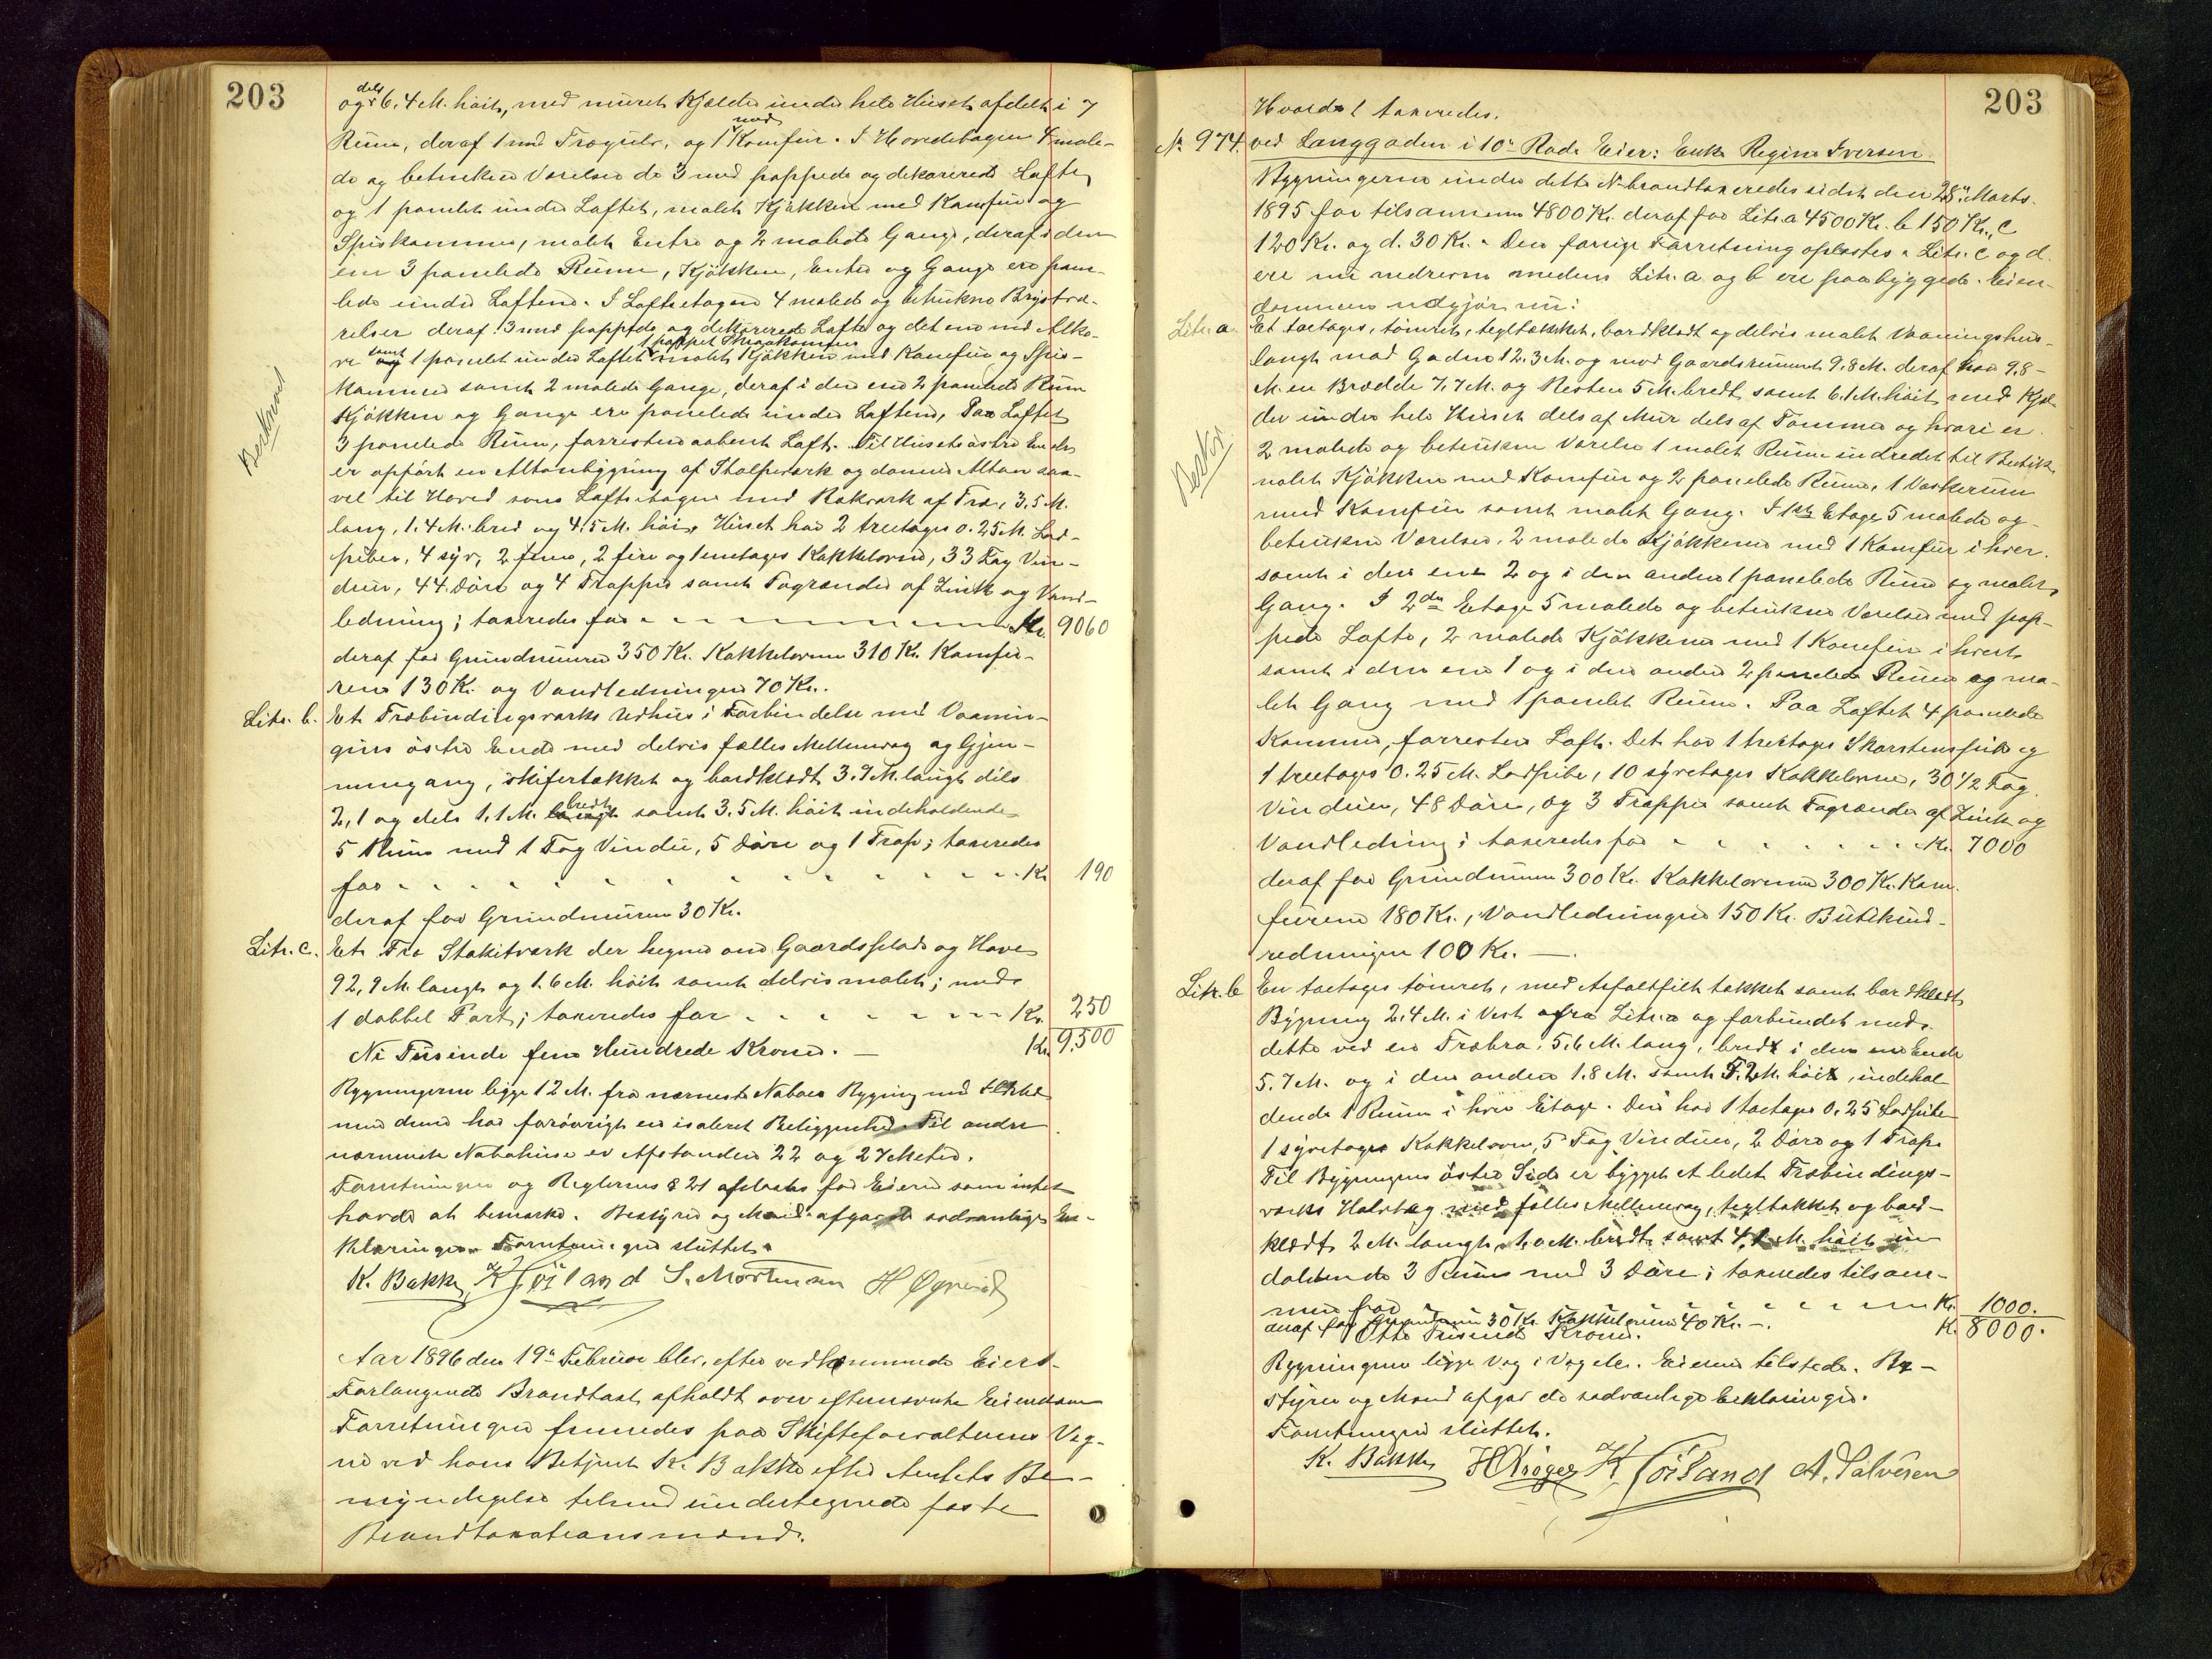 203
og dels 6.4 M. høit, med muret Kjelder under hele Huset afdelt i 7
Rum, deraf 1 med Trægulv, og 1 med Komfur. I Hovedetagen 4 male-
de og betrukne Værelser de 3 med pappede og dekorerede Lofte
og 1 panelet under Loftet, malet Kjøkken med Komfur og
Spiskammer, malet Entre og 2 malede Gange, deraf i den
ene 3 panelede Rum, Kjøkken, Entre og Gange ere pane-
lede under Loftene. I Loftsetagen 4 malede og betrukne Kvistvæ-
relser deraf 3 med pappede og dekorerede Lofte og det ene med Alko-
ve samt 1 panelet under Loftet 1 pappet Skraakammer malet Kjøkken med Komfur og Spis-
kammer samt 2 malede Gange, deraf i den ene 2 panelede Rum
Kjøkken og Gange ere panelede under Loftene, Paa Loftet
3 panelede Rum, forresten aabent Loft. Til Husets østre Ende
er opført en Altanbygning af Stolpeværk og danner Altan saa-
vel til Hoved som Loftsetagen med Rækværk af Træ, 3,5 M.
lang, 1.4 M. bred og 4.5 M. høi. Huset har 2 treetages 0.25 M. Lod-
piber, 4 syv, 2 fem, 2 fire og 1 enetages Kakkelovne, 33 Fag Vin-
duer, 44 Døre og 4 Trapper samt Tagrender af Zink og Vand-
ledning; taxeredes for Kr. 9060
deraf for Grundmuren 350 Kr. Kakkelovne 310 Kr. Komfu-
rene 130 Kr. og Vandledningen 70 Kr.
Litr. b. Et Træbindingsværks Udhus i Forbindelse med Vaanin-
gens østre Ende med delvis fælles Mellemvæg og Gjen-
nemgang, skifertækket og bordklædt 3.9 M. langt dels
2,1 og dels 1.1 M. bredt samt 3.5 M. høit indeholdende
5 Rum med 1 Fag Vindu, 5 Døre og 1 Trap; taxeredes
for Kr. 190
deraf for Grundmuren 30 Kr.
Litr. c. Et Træ Stakitværk der hegner om Gaardsplads og Have
92,9 M. langt og 1.6 M. høit samt delvis malet; med
1 dobbel Port; taxeredes for Kr. 250
Ni Tusinde fem Hundrede Kroner. Kr. 9,500
Bygningerne ligge 12 M. fra nærmeste Naboes Bygning med
men denne har forøvrigt en isoleret Beliggenhed. Til andre
nærmeste Nabohuse er Afstanden 22 og 27 Meter.
Forretningen og Reglernes § 21 oplæstes for Eieren som intet
havde at bemærke. Bestyrer og Mænd afgav de sedvanlige Er-
klæringer. Forretningen sluttet.
K. Bakke K Høiland S. Mortensen H Øgreid
Aar 1896 den 19de Februar blev, efter vedkommende Eiers
Forlangende Brandtaxt afholdt over efternævnte Eiendom
Forretningen fremedes paa Skifteforvalterens Veg-
ne ved hans Betjent K. Bakke efter Amtets Be-
myndigelse tilmed undertegnede faste
Brandtaxationsmænd.
Beskrevet
203
Hvorda taxeredes.
No. 974. ved Langgaden i 10de Rode Eier: Enke Regine Iversen
Bygningerne under dette No. brandtaxeredes sidst den 28de Marts
1895 for tilsammen 4800 Kr. deraf for Litr. a 4500 Kr. b 150 Kr., c
120 Kr. og d. 30 Kr. Den forrige Forretning oplæstes. Litr. c og d.
ere nu nedrevne medens Litr. a og b ere paabyggede. Eien-
dommen udgjør nu:
Litr. a. Et toetages, tømret, tegltækket, bordklædt og delvis malet Vaaningshus
langt mod Gaden 12.3 M. og mod Gaardsrummet 9.8 M. deraf har 9,8-
M. en Bredde 7.7 M. og Resten 5 M. bredt samt 6.1 M. høit med Kjel-
der under hele Huset dels af Mur dels af Tømmer og hvori er
2 malede og betrukne Værelser 1 malet Rum indredet til Butik,
malet Kjøkken med Komfur og 2 panelede Rum, 1 Vaskerum
med Komfur samt malet Gang. I 1ste Etage 5 malede og
betrukne Værelser, 2 malede Kjøkkener med 1 Komfur i hver
samt i den ene 2 og i den anden 1 panelede Rum og malet
Gang. I 2den Etage 5 malede og betrukne Værelser med pap-
pede Lofte, 2 malede Kjøkkener med 1 Komfur i hvert
samt i den ene 1 og i den anden 2 panelede Rum og ma-
let Gang med 1 panelet Rum. Paa Loftet 4 panelede
Kammer, forresten Loft. Det har 1 treetages Skorstenspibe og
1 treetages 0.25 M. Lodpibe, 10 syvetages Kakkelovne, 30 1/2 Fag
Vinduer, 48 Døre, og 3 Trapper samt Tagrender af Zink og
Vandledning; taxeredes for Kr. 7000
deraf for Grundmuren 300 Kr. Kakkelovnene 300 Kr. Kom-
furene 180 Kr., Vandledningen 150 Kr. Butikind-
redningen 100 Kr.
Litr. b En toetages tømret, med Asfaltfilt tækket samt bordklædt
Bygning 2.4 M. i Vest afra Litr. a og forbundet med
dette ved en Træbro. 5.6 M. lang, bredt i den ene Ende
5.7 M. og i den anden 1.8 M. samt 5.2 M. høit, indehol-
dende 1 Rum i hver Etage. Den har 1 toetages 0.25 Lodpibe
1 syvetages Kakkelovn, 5 Fag Vinduer, 2 Døre og 1 Trap.
Til Bygningens østre Side er bygget et ledet Træbindings-
værks Halvtag med fælles Mellemvæg, tegltækket og bord-
klædt 2 M. langt, 1.0 M. bredt samt 4.1 M. høit in
doldende 3 Rum med 3 Døre; taxeredes tilsam-
men for Kr. 1000.
deraf for Grundmuren 30 Kr. Kakkelovnene 40 Kr.
Otte Tusinde Kroner. Kr. 8000.
Bygningerne ligge Væg i Væg etc. Eieren tilstede. Be-
styrer og Mænd afgav de sædvanlige Erklæringer.
Forretningen sluttet.
K. Bakke H Krøger K Høiland A. Salvesen
Beskr.